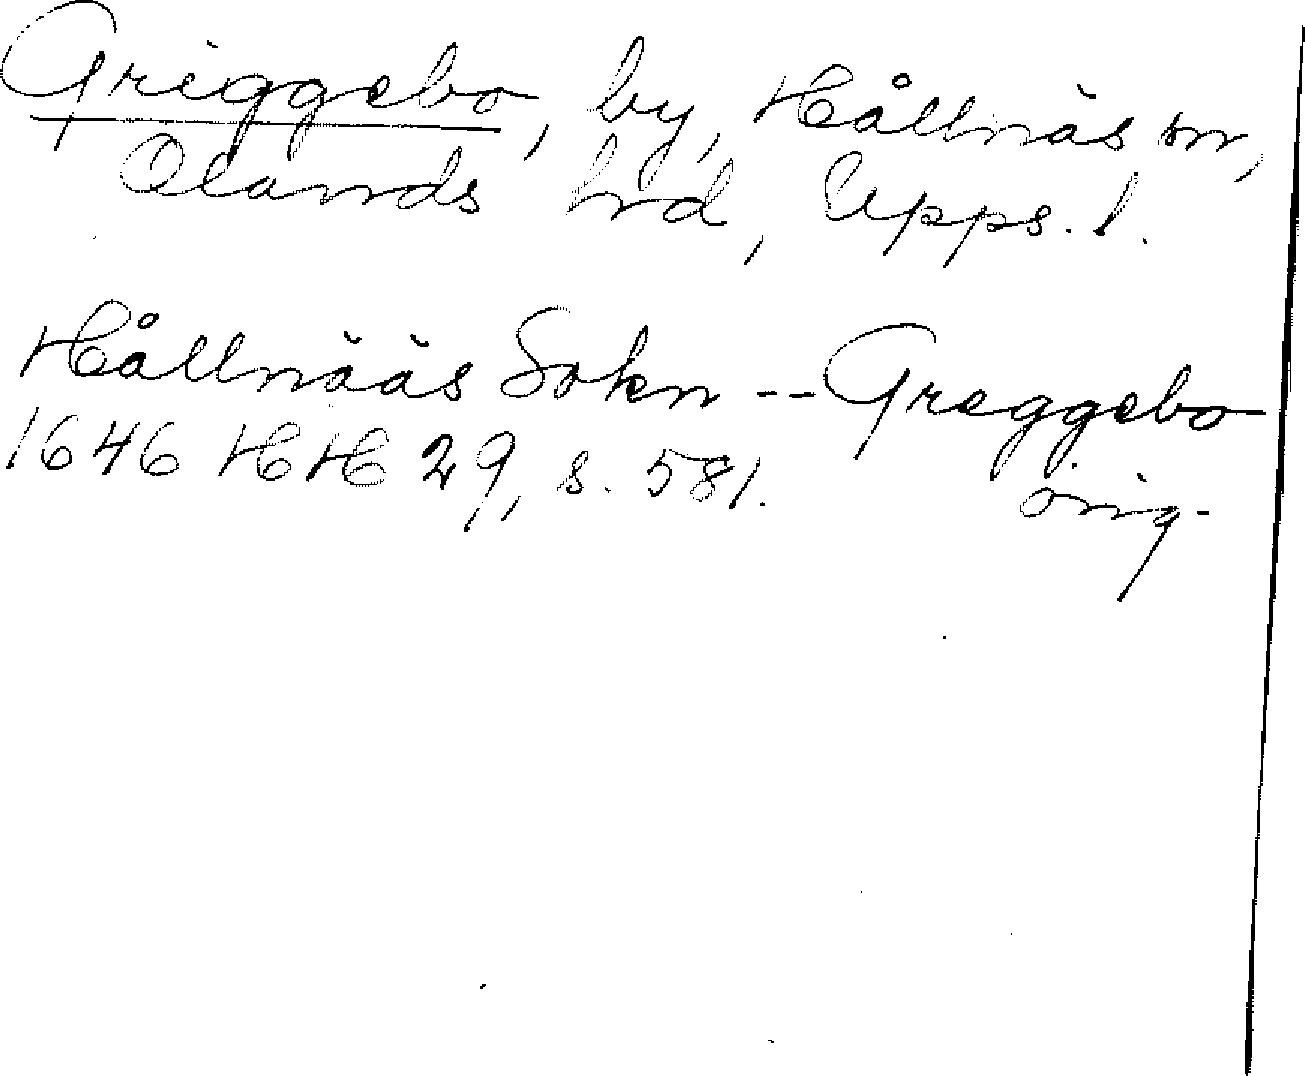 Griggebo, by, Hållnäs sn,
Olands hrd, Upps. l.
Hållnääs Sokn -- Greggebo
1646 HH 29, s. 581. orig.